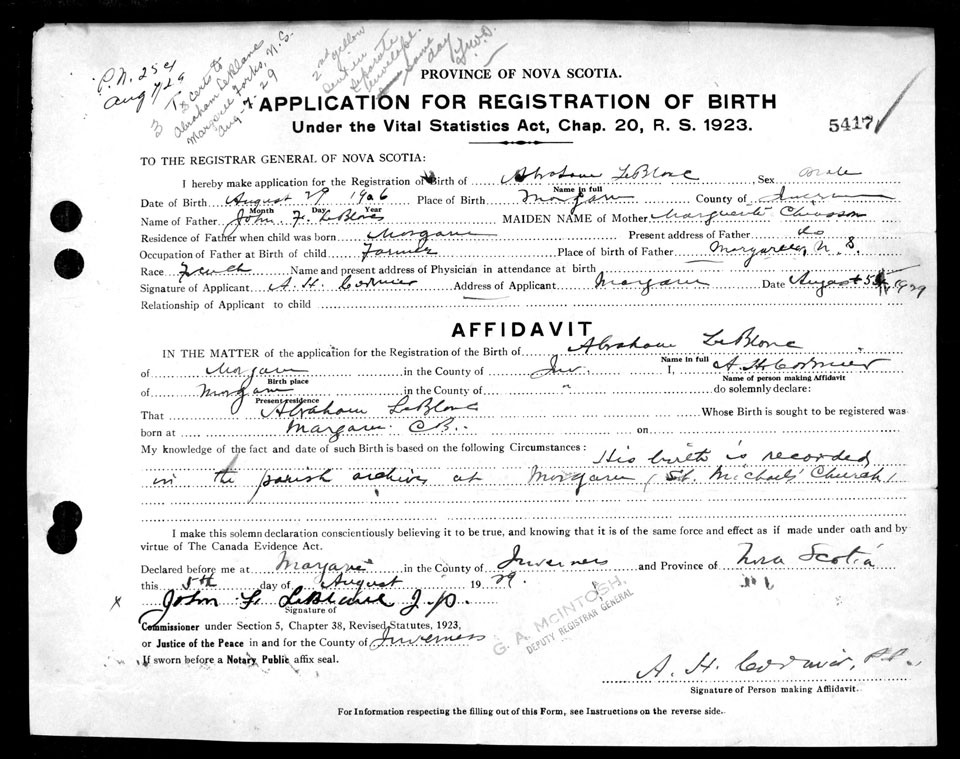 P.N. 254
Aug 7/29
3 Tx certs to
Abraham LeBlanc
Margaree Forks, N.S.
Aug. 7. 29
2nd yellow
sent in
separate
envelope
same
day
PROVINCE OF NOVA SCOTIA.
APPLICATION FOR REGISTRATION OF BIRTH
Under the Vital Statistics Act, Chap. 20, R. S. 1923.
5417
TO THE REGISTRAR GENERAL OF NOVA SCOTIA:
I hereby make application for the Registration of Birth of Abraham LeBlanc Sex male
Name in full
Date of Birth August 29 1906 Place of Birth Margaree County of
Month Day Year
Name of Father John F. LeBlanc MAIDEN NAME of Mother Marguerite Chiasson
Residence of Father when child was born Margaree Present address of Father do
Occupation of Father at Birth of child Farmer Place of birth of Father Margaree, N. S.
Race French Name and present address of Physician in attendance at birth
Signature of Applicant A. H. Cormier Address of Applicant Margaree Date August 5th, 1929
Relationship of Applicant to child
AFFIDAVIT
IN THE MATTER of the application for the Registration of the Birth of Abraham LeBlanc
Name in full
of Margaree in the County of Inv. I, A. H. Cormier
Birth place
Name of person making Affidavit
of Margaree in the County of " do solemnly declare:
Present residence
That Abraham LeBlanc Whose Birth is sought to be registered was
born at Margaree C.B. on
My knowledge of the fact and date of such Birth is based on the following Circumstances: His birth is recorded
in the parish archives at Margaree (St. Michael's Church)
I make this solemn declaration conscientiously believing it to be true, and knowing that it is of the same force and effect as if made under oath and by
virtue of The Canada Evidence Act.
Declared before me at Margaree in the County of Inverness and Province of Nova Scotia
this 5th day of August 1929.
x John F. LeBlanc J.P.
Signature of
Commissioner under Section 5, Chapter 38, Revised Statutes, 1923,
or Justice of the Peace in and for the County of Inverness
If sworn before a Notary Public affix seal.
G. A. McINTOSH,
DEPUTY REGISTRAR GENERAL
A. H. Cormier, P.P.
Signature of Person making Affidavit.
For Information respecting the filling out of this Form, see Instructions on the reverse side.